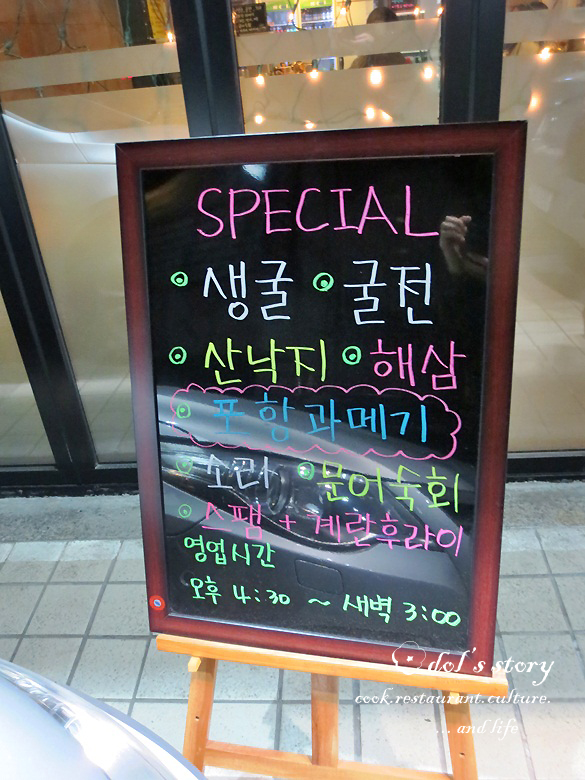 SPECIAL
생굴 굴전
산낙지 해삼
포항과메기
소라 문어숙회
스팸 + 계란후라이
영업시간
오후 4:30 ~ 새벽 3:00
dol's story
cook.restaurant.culture.
... and life